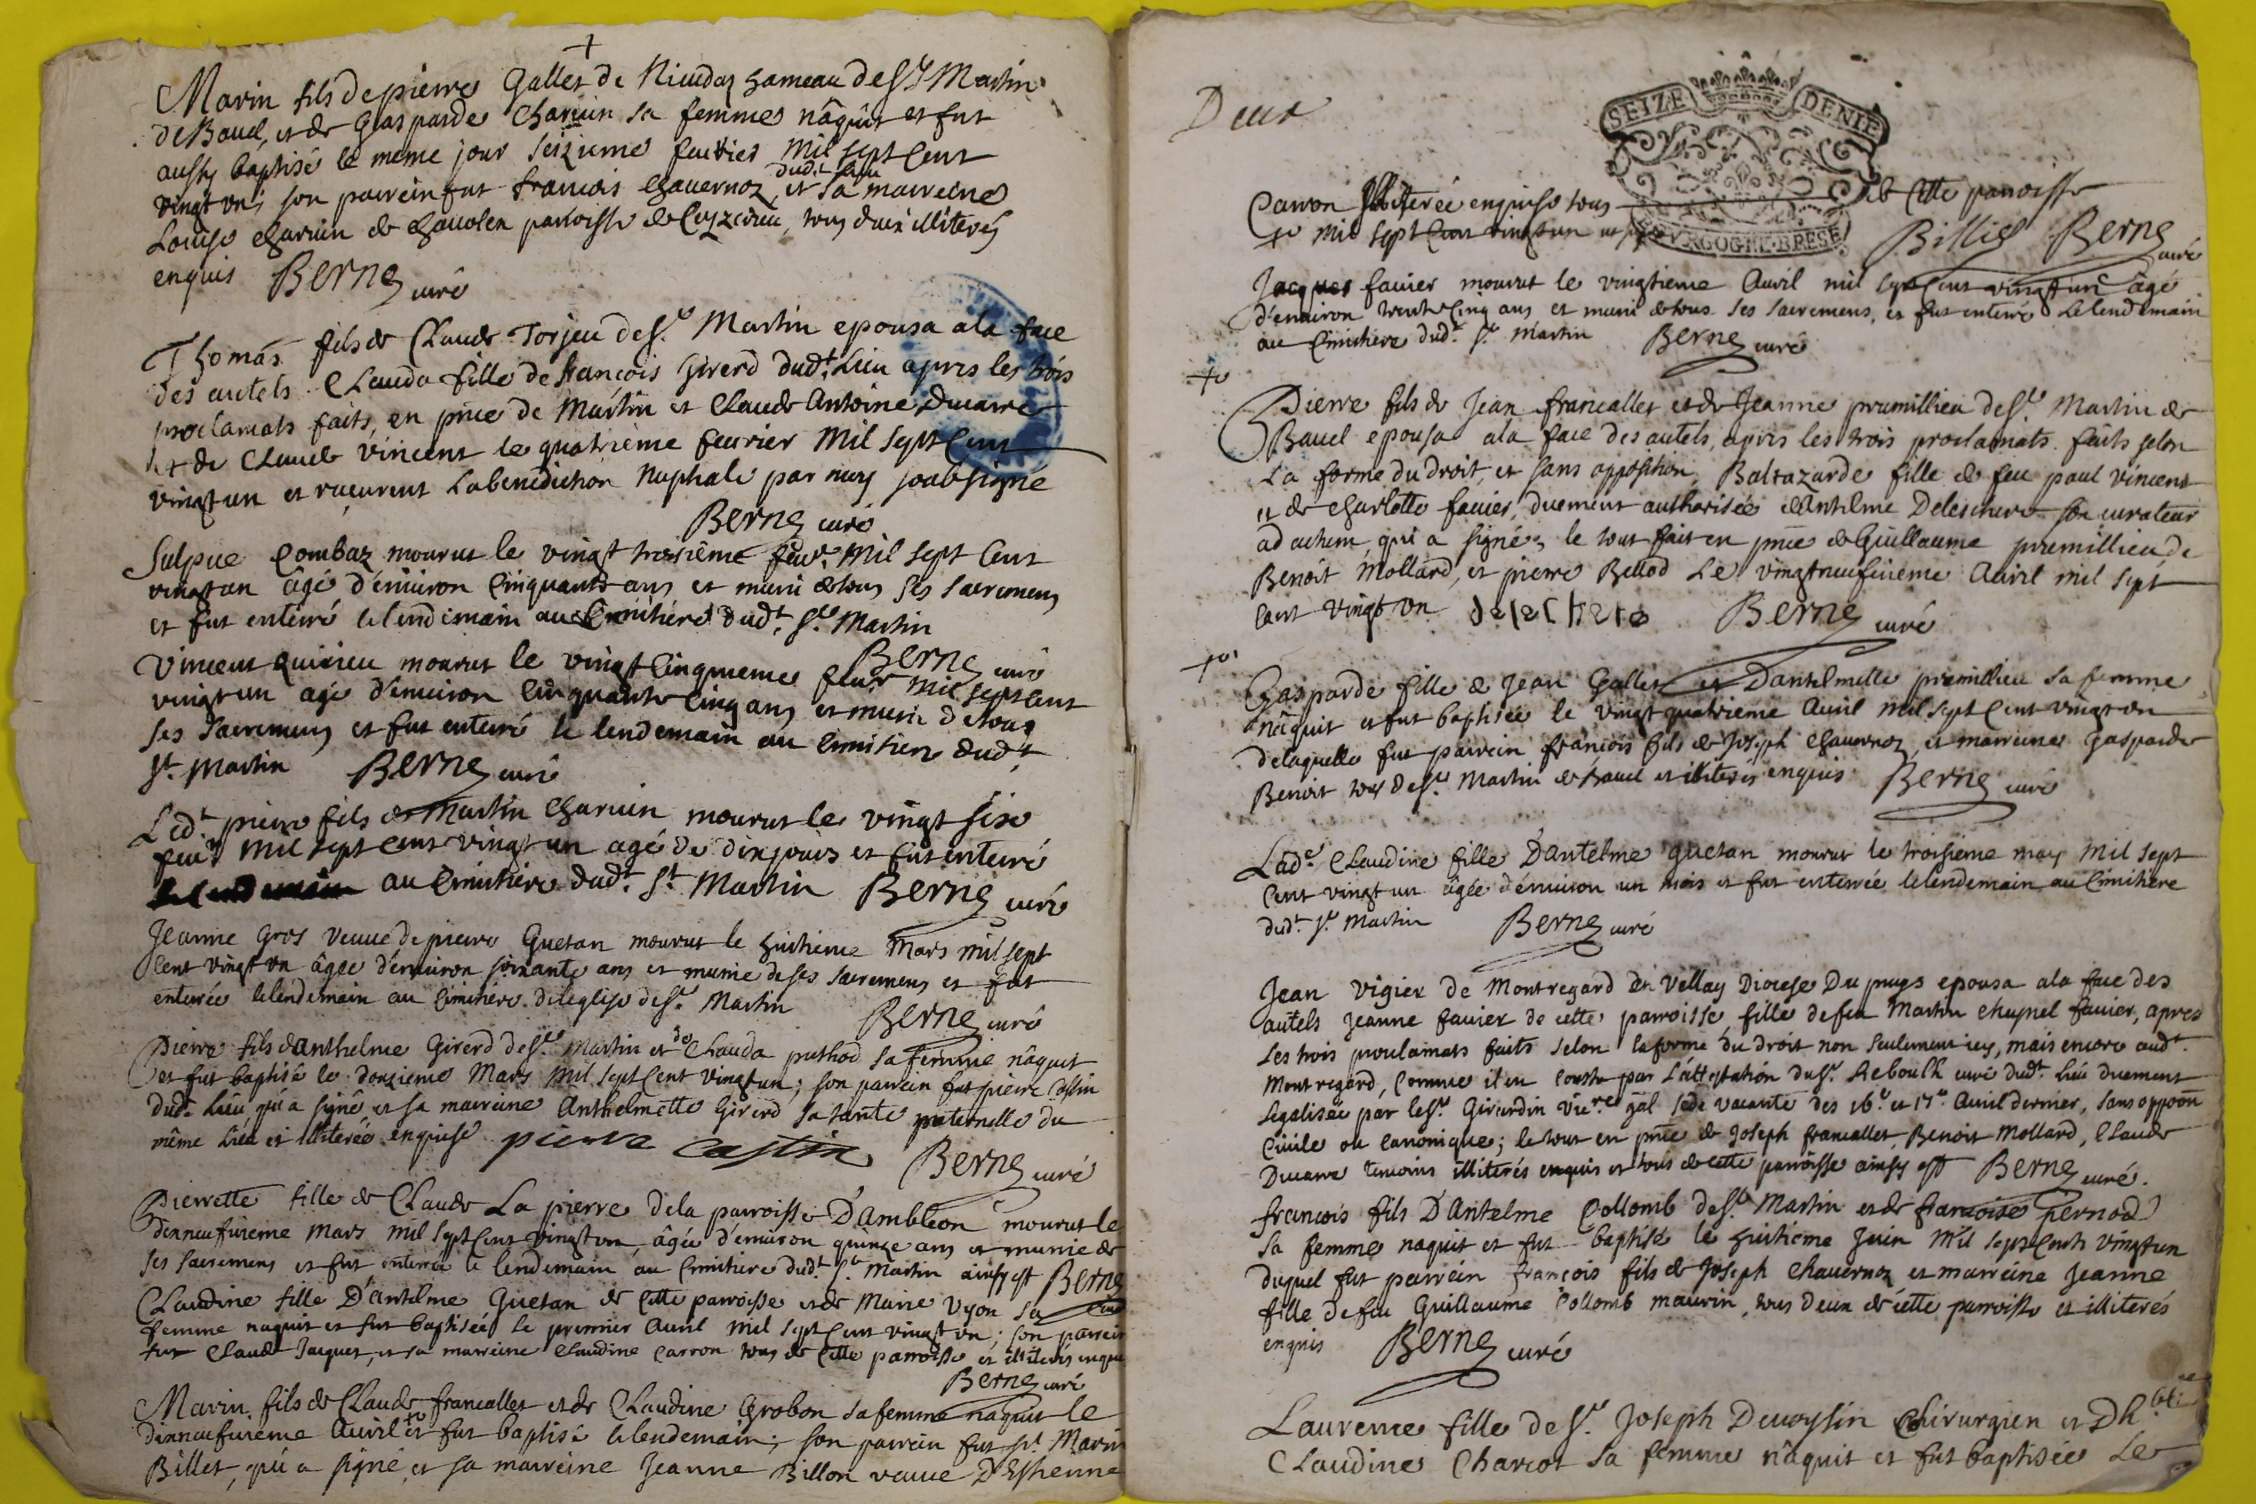 Marin fils de pierre Gallet de hameau de St Martin
de Bavel, et de Gasparde Charuin sa femme nâquit et fut
aussy baptisé le meme jour seizieme feuvrier mil sept cent
vingt un, son parrein fut francois Chavernoz dudt lieu et sa marreine
Louise charuin de parroisse de Ceyzerieu, tous deux illiterés
enquis Berne curé
Thomas fils de Claude Torjeu de St Martin epousa a la face
des autels Clauda fille de francois Girerd dudt Lieu apres les trois
proclamats faits, en pnce de Martin et Claude Antoine Ducarre
et de Claude Vincent le quatrieme feuvrier mil sept cent
vingt un et reçeurent la benediction nuptiale par moy soubsigné
Berne curé
Sulpice Combaz mourut le vingt troisième feuvr mil sept cent
vingt un âgé d'environ cinquante ans et muni de tous ses sacremens
et fut enterré le lendemain au Cimitiere dudt St Martin
Berne curé
Vincent mourut le vingt cinquieme feuvr mil sept cent
vingt un agé d'environ cinquante cinq ans et muni de tous
ses sacremens et fut enterré le lendemain au cimitiere dudt
St Martin Berne curé
Ledt pierre fils de Martin Charuin mourut le vingt sixe
feuvr mil sept cent vingt un agé de dix jours et fut enterré
au Cimitiere dudt St Martin Berne curé
Jeanne Gros veuve de pierre Guetan mourut le huitieme Mars mil sept
cent vingt un âgée d'environ soixante ans et munie de ses sacremens et fut
enterrée le lendemain au Cimitiere de l'eglise de St Martin
Berne curé
Pierre fils d'anthelme Girerd de St Martin et de Clauda puthod sa femme nâquit
et fut baptisé le douzieme Mars mil sept cent vingt un; son parrein fut pierre Castin
dudt Lieu, qui a signé et sa marreine Anthelmette Girerd sa tante paternelle du
même Lieu et illiterée enquise pierre castin
Berne curé
Pierrette fille de Claude La pierre de la parroisse D'Ambleon mourut le
dixneufvieme Mars mil sept cent vingt un âgée d'environ quinze ans et munie de
ses sacremens et fut enterrée le lendemain au Cimitiere dudt St Martin ainsy est Berne
curé
Claudine fille D'antelme Guetan de cette parroisse et de Marie Vyon sa
femme naquit et fut baptisée le premier Avril mil sept cent vingt un; son parrein
fut Claude Jacquet, et sa marreine Claudine Carron tous de cette parroisse et illiterés enquis
Berne curé
Marin fils de Claude francallet et de Claudine Grobon sa femme naquit le
dixneufvieme Avril et fut baptisé le lendemain; son parrein fut Sr Marin
Billet, qui a signé, et sa marreine Jeanne Billon veuve D'Esthenne
Deux
SEIZE DENIE
BOURGOGNE BRESE
Carron illiterée enquise tous de cette parroisse
mil sept cent vingt un Billiet Berne curé
Jacques favier mourut le vingtieme Avril mil sept cent vingt un âgé
d'environ trente cinq ans et muni de tous ses sacremens, et fut enterré le lendemain
au Cimitiere dudt St Martin Berne curé
Pierre fils de Jean francallet et de Jeanne premillieu de St Martin de
Bavel epousa a la face des autels, apres les trois proclamats faits selon
la forme du droit, et sans opposition, Baltazarde fille de feu paul Vincent
et de charlotte favier, duement authorisée d'Antelme Deleschere son curateur
ad actum, qui a signé, le tout fait en pnce de Guillaume premillieu de
Benoit Mollard, et pierre Bellod Le vingtneufvieme Avril mil sept
cent vingt un delechere Berne curé
Gasparde fille de Jean Gallet et D'antelmette premillieu sa femme
nâquit et fut baptisée le vingt quatrieme Avril mil sept cent vingt un
de laquelle fut parrein françois fils de Joseph Chavernoz, et marreine Gasparde
Benoit tous de St Martin de Bavel et illiterés enquis Berne curé
Lade Claudine fille D'antelme Guetan mourut le troisieme may mil sept
cent vingt un âgée d'environ un mois et fut enterrée le lendemain au Cimitiere
dudt St Martin Berne curé
Jean Vigier de Montregard en Vellay Diocese Du puys epousa a la face des
autels Jeanne favier de cette parroisse, fille de feu Martin favier, apres
les trois proclamats faits selon la forme du droit non seulement icy, mais encore audt
Montregard, comme il en conste par L'attestation du Sr curé dudt Lieu duement
legalisée par le Sr Girardin Vicre gal sede vacante des 16e et 17e Avril dernier, sans oppoon
Civile ou canonique; le tout en pnce de Joseph francallet Benoit Mollard, Claude
Ducarre temoins illiterés enquis et tous de cette parroisse ainsy est Berne curé.
francois fils D'Antelme Collomb de St Martin et de francoise pernod
sa femme naquit et fut baptisé le huitieme Juin mil sept cent vingt un
duquel fut parrein françois fils de Joseph Chavernoz et marreine Jeanne
fille de feu Guillaume Collomb maurin, tous deux de cette parroisse et illiterés
enquis Berne curé
Laurence fille de Sr Joseph Devoysin Chirurgien et Dh
Claudine Charcot sa femme nâquit et fut baptisée le